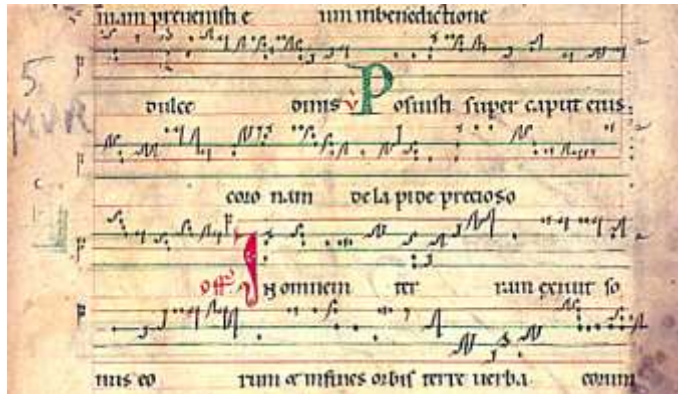 nam prevenisti e um inbenedictione
dulce dinis v Posuisti super caput eius
coro nam de la pide precioso
off In omnem ter ram exivit so
nus eo rum & infines orbis terre verba eorum